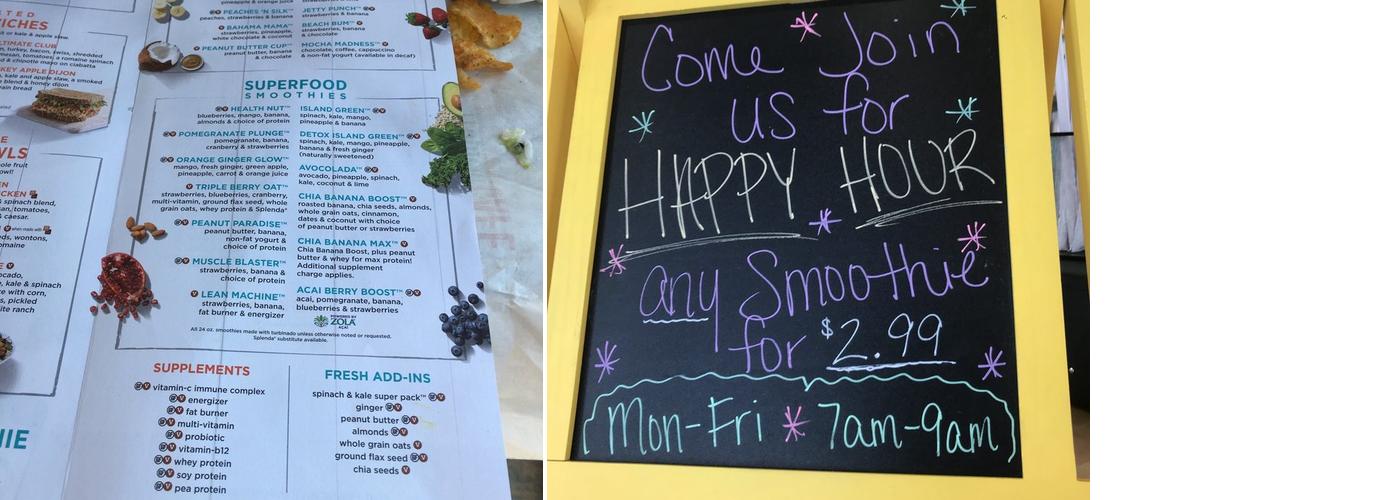 PEACHES 'N SILK™
peaches, strawberries & banana
BAHAMA MAMA™
strawberries, pineapple,
white chocolate & coconut
PEANUT BUTTER CUP™
peanut butter, banana
& chocolate
JETTY PUNCH™
strawberries & banana
BEACH BUM™
strawberries, banana
& chocolate
MOCHA MADNESS™
chocolate, coffee, cappuccino
& non-fat yogurt (available in decaf)
SUPERFOOD
SMOOTHIES
HEALTH NUT™
blueberries, mango, banana,
almonds & choice of protein
POMEGRANATE PLUNGE™
pomegranate, banana,
cranberry & strawberries
ORANGE GINGER GLOW™
mango, fresh ginger, green apple,
pineapple, carrot & orange juice
TRIPLE BERRY OAT™
strawberries, blueberries, cranberry,
multi-vitamin, ground flax seed, whole
grain oats, whey protein & Splenda®
PEANUT PARADISE™
peanut butter, banana,
non-fat yogurt &
choice of protein
MUSCLE BLASTER™
strawberries, banana &
choice of protein
LEAN MACHINE™
strawberries, banana,
fat burner & energizer
ISLAND GREEN™
spinach, kale, mango,
pineapple & banana
DETOX ISLAND GREEN™
spinach, kale, mango, pineapple,
banana & fresh ginger
(naturally sweetened)
AVOCOLADA™
avocado, pineapple, spinach,
kale, coconut & lime
CHIA BANANA BOOST™
roasted banana, chia seeds, almonds,
whole grain oats, cinnamon,
dates & coconut with choice
of peanut butter or strawberries
CHIA BANANA MAX™
Chia Banana Boost, plus peanut
butter & whey for max protein!
Additional supplement
charge applies.
ACAI BERRY BOOST™
acai, pomegranate, banana,
blueberries & strawberries
POWERED BY
ZOLA
ACAI
All 24 oz. smoothies made with turbinado unless otherwise noted or requested.
Splenda® substitute available.
SUPPLEMENTS
vitamin-c immune complex
energizer
fat burner
multi-vitamin
probiotic
vitamin-b12
whey protein
soy protein
pea protein
FRESH ADD-INS
spinach & kale super pack™
ginger
peanut butter
almonds
whole grain oats
ground flax seed
chia seeds
Come Join
us for
HAPPY HOUR
any Smoothie
for $2.99
Mon-Fri * 7am-9am